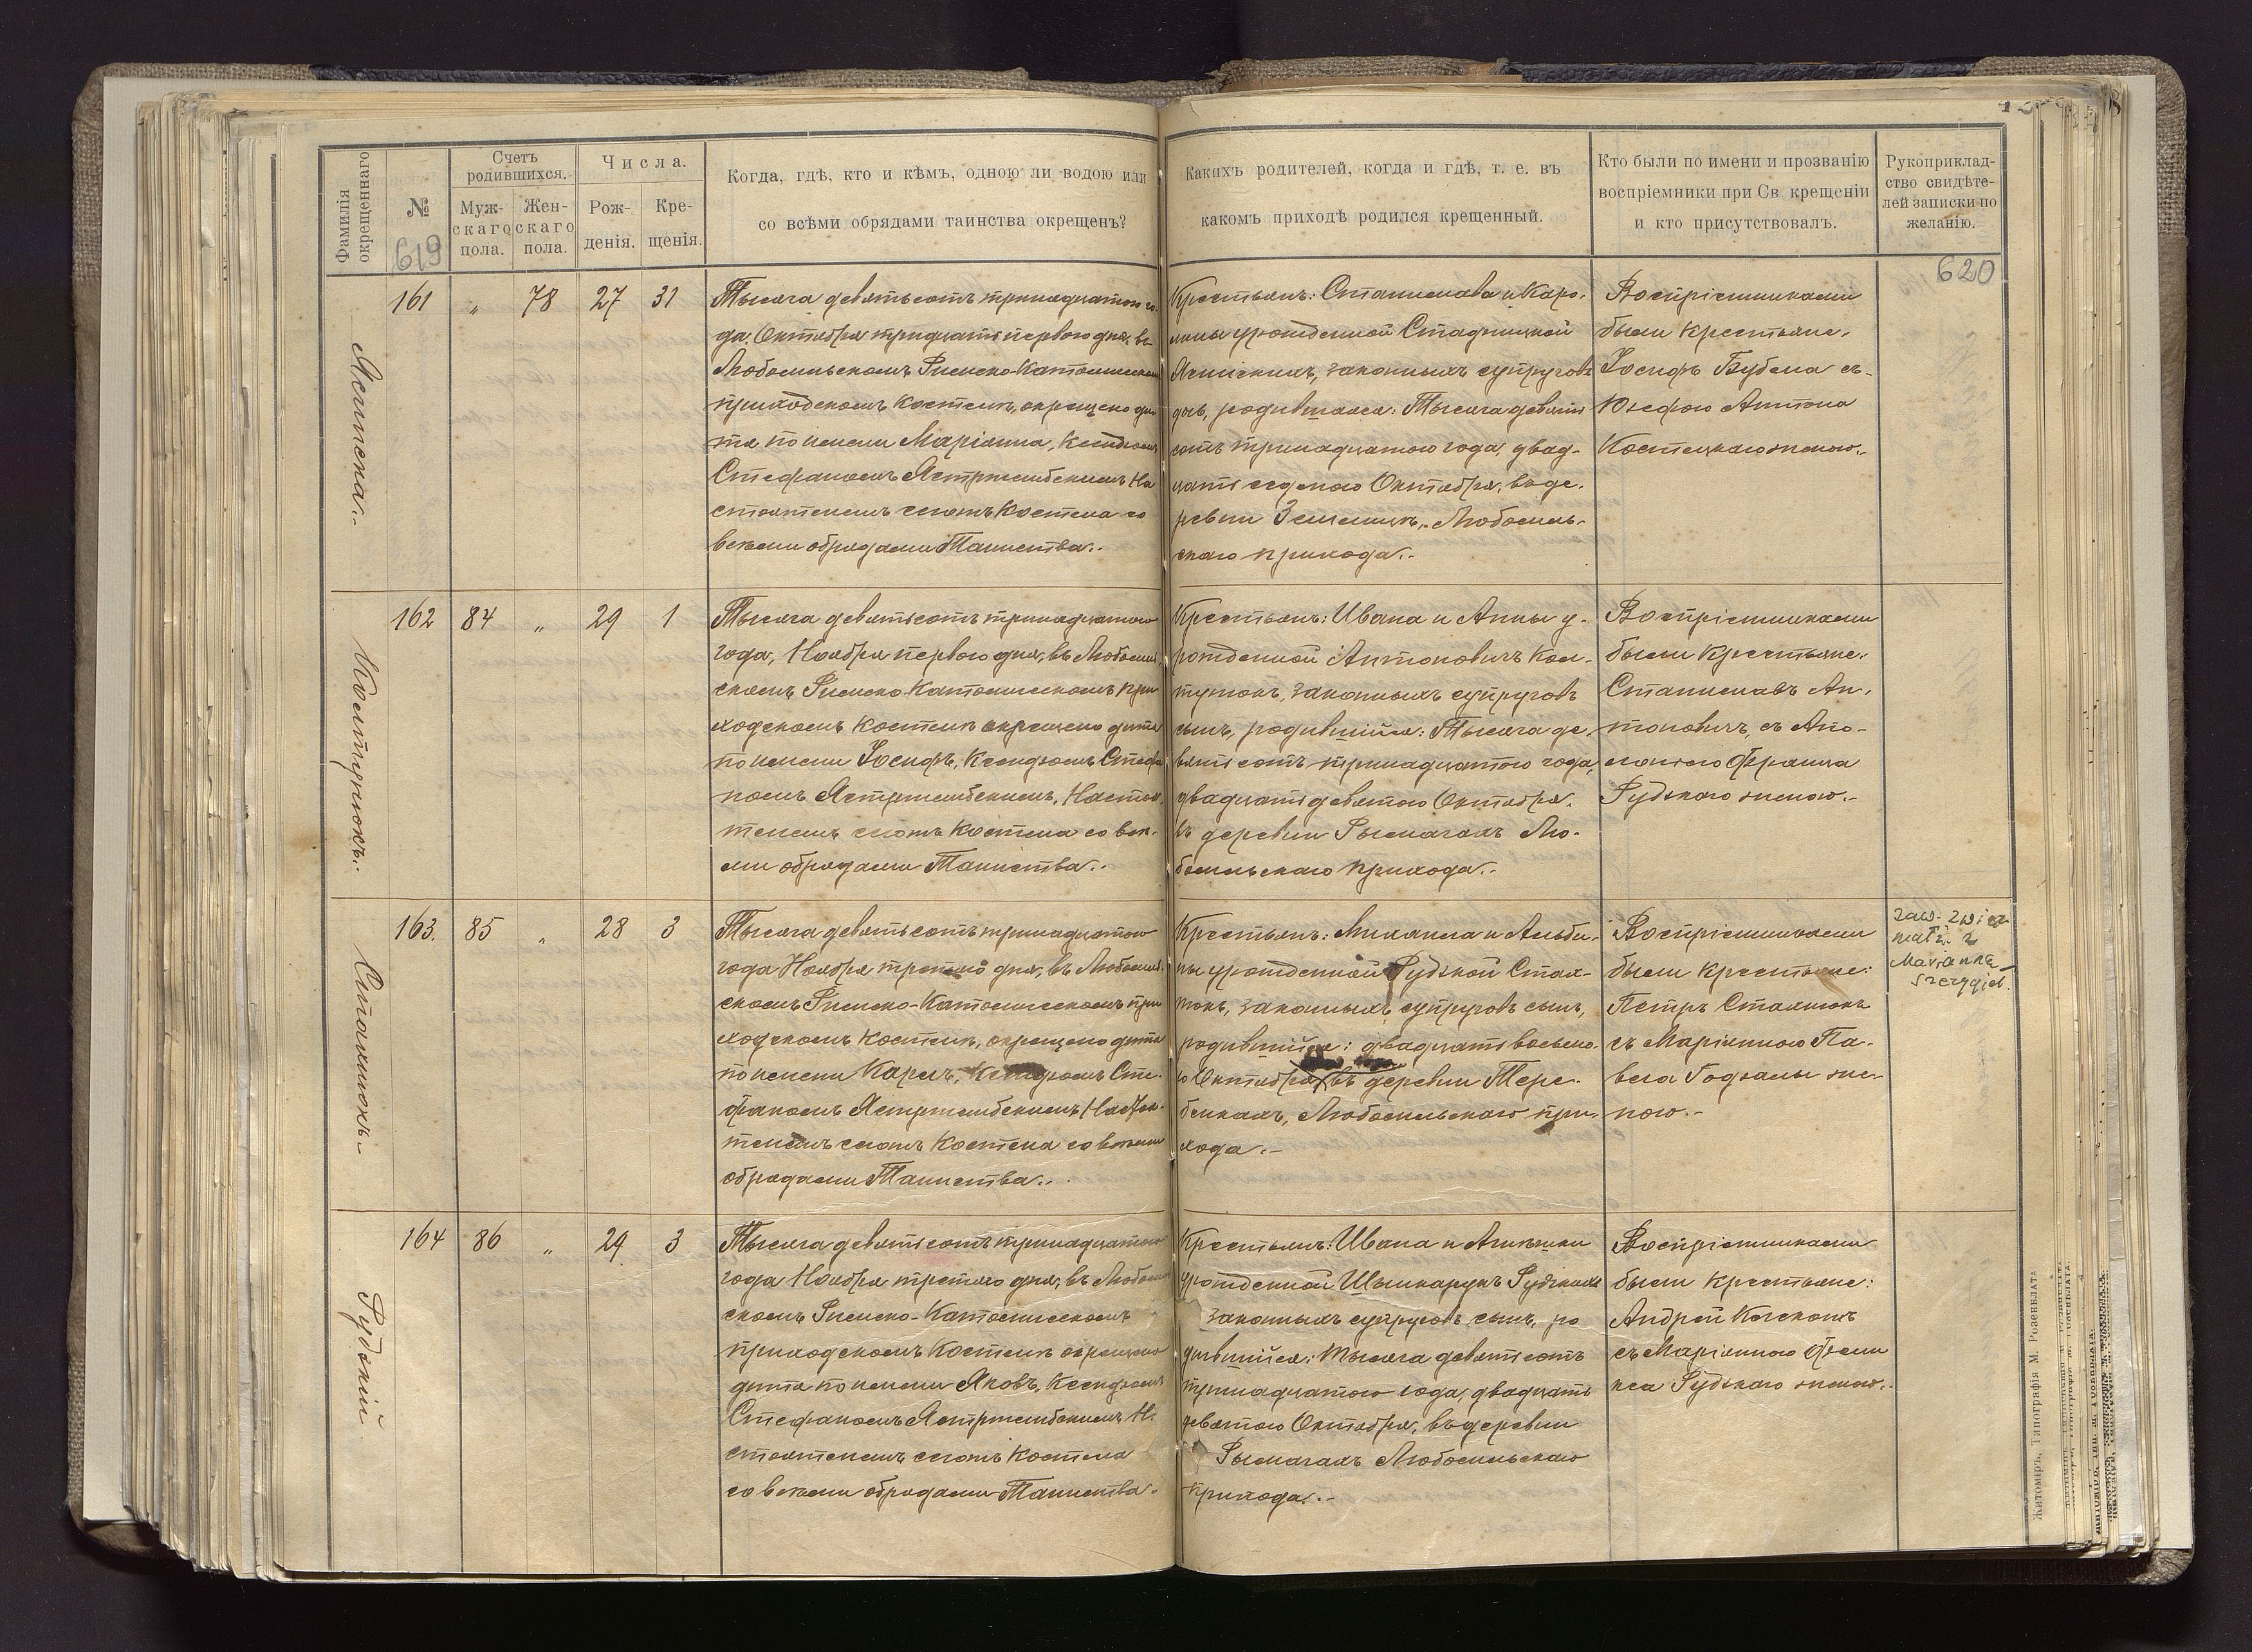 Фамилія окрещеннаго
№
Счетъ родившихся.
Мужскаго пола.
Женскаго пола.
Числа.
Рожденія.
Крещенія.
Когда, гдѣ, кто и кѣмъ, одною ли водою или
со всѣми обрядами таинства окрещенъ?
Какихъ родителей, когда и гдѣ, т. е. въ
какомъ приходѣ родился крещенный.
Кто были по имени и прозванію
воспріемники при Св. крещеніи
и кто присутствовалъ.
Рукоприклад-
ство свидѣте-
лей записки по
желанію.
619
620
161 „ 78 27 31
Тысяча девятьсотъ тринадцатого го-
да, Октября тридцать перваго дня, въ
Любомльскомъ Римско-Католическомъ
приходскомъ Костелѣ, окрещено ди-
тя по имени Маріанна, Ксендзомъ
Стефаномъ Ястржембскимъ На
стоятелемъ сегожъ Костела со
всѣми обрядами Таинства.-
Крестьянъ: Станислава и Каро-
лины урожденной
законныхъ супруговъ
дочь, родившаяся: Тысяча девять
сотъ тринадцатого года, двад-
цать седьмого Октября, въ де-
ревни Землицѣ, Любомль-
скаго прихода.-
Воспріемниками
были крестьяне:
Іосифъ съ
Юзефою Антона
женою.-
Костюкъ.-
162 84 „ 29 1
Тысяча девятьсотъ тринадцатого
года, Ноября перваго дня, въ Любомль-
скомъ Римско-Католическомъ при
ходскомъ Костелѣ окрещено дитя
по имени Іосифъ, Ксендзомъ Стефа
номъ Ястржембскимъ, Настоя-
телемъ сегожъ Костела со всѣ-
ми обрядами Таинства.-
Крестьянъ: Ивана и Анны у-
рожденной Антоновичъ
законныхъ супруговъ
сынъ, родившійся: Тысяча де-
вятьсотъ тринадцатого года,
двадцать девятого Октября,
въ деревни Рымачахъ Лю-
бомльскаго прихода.-
Воспріемниками
были крестьяне:
Станиславъ Ан-
тоновичъ, съ Апо-
лоніею Франца
Рудзкаго женою.-
Стахнюкъ.-
163. 85 „ 28 3
Тысяча девятьсотъ тринадцатого
года Ноября третьяго дня, въ Любомль-
скомъ Римско-Католическомъ при
ходскомъ Костелѣ, окрещено дитя
по имени Карлъ, Ксендзомъ Сте-
фаномъ Ястржембскимъ Настоя-
телемъ сегожъ Костела со всѣми
обрядами Таинства.-
Крестьянъ: Михаила и Альби-
ны урожденной Рудзкой Стах-
нюкъ, законныхъ супруговъ сынъ,
родившійся: двадцать восьмо-
го Октября въ деревни Тере-
бейкахъ, Любомльскаго при-
хода.-
Воспріемниками
были крестьяне:
Петръ Стахнюкъ
съ Маріанною Па-
вела Годзалы же-
ною.-
zaw. związ
małż. z
Marianną
Рудзкій
164 86 „ 29 3
Тысяча девятьсотъ тринадцатого
года Ноября третьяго дня, въ Любомль
скомъ Римско-Католическомъ
приходскомъ Костелѣ окрещено
дитя по имени Яковъ, Ксендзомъ
Стефаномъ Ястржембскимъ На
стоятелемъ сегожъ Костела
со всѣми обрядами Таинства.
Крестьянъ: Ивана и Агнѣшки
урожденной Рудзкихъ
законныхъ супруговъ сынъ, ро
дившійся: Тысяча девятьсотъ
тринадцатого года, двадцать
девятого Октября, въ деревни
Рымачахъ Любомльскаго
прихода.-
Воспріемниками
были крестьяне:
Андрей
съ Маріанною
Рудзкаго женою.-
Житоміръ, Типографія М. Розенблата